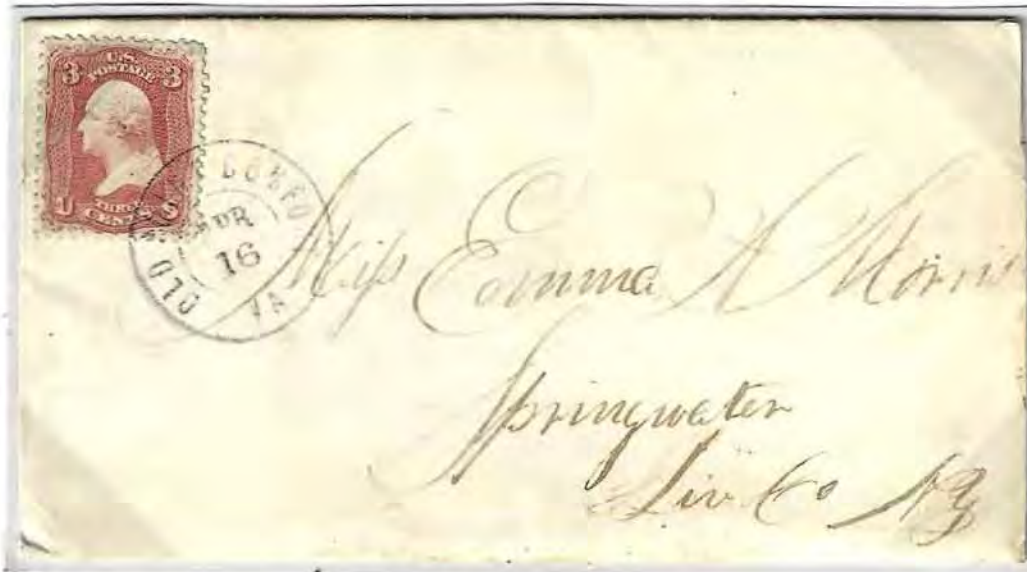 U.S.
POSTAGE
3 3
THREE
U CENTS S
OLD POINT COMFORT
VA
APR
16
Miss Emma A Morris
Springwater
Liv Co NY